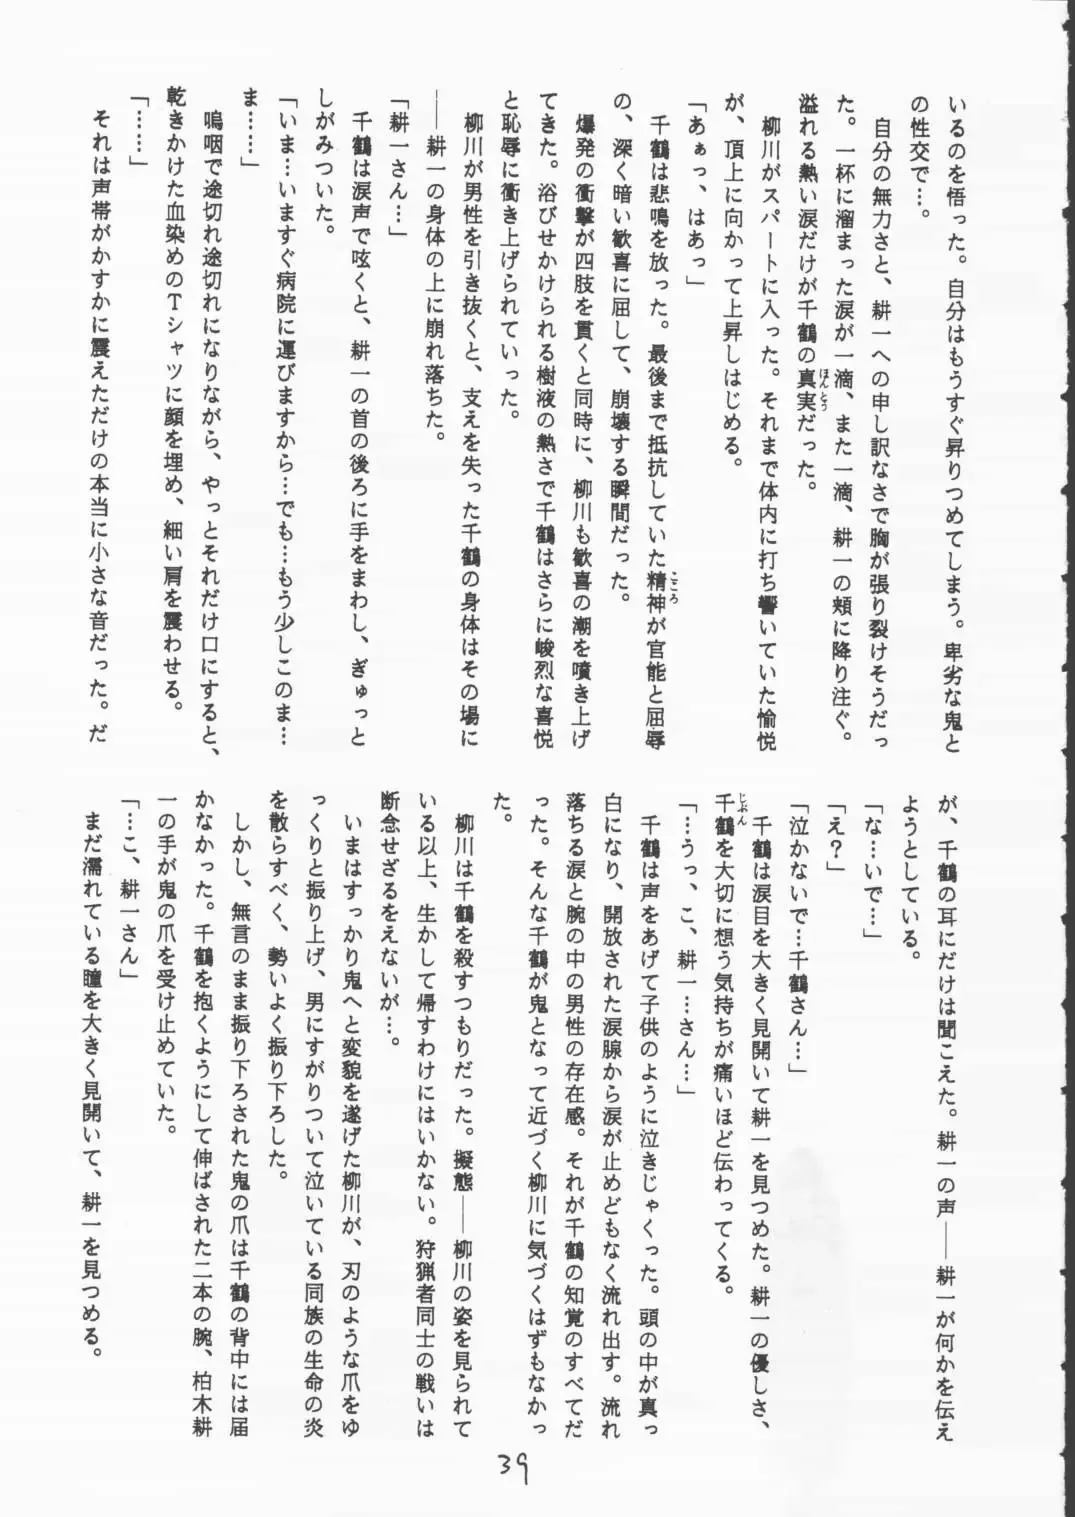 いるのを悟った。自分はもうすぐ昇りつめてしまう。卑劣な鬼と
の性交で…。
　自分の無力さと、耕一への申し訳なさで胸が張り裂けそうだっ
た。一杯に溜まった涙が一滴、また一滴、耕一の頬に降り注ぐ。
溢れる熱い涙だけが千鶴の真実(ほんとう)だった。
　柳川がスパートに入った。それまで体内に打ち響いていた愉悦
が、頂上に向かって上昇しはじめる。
「あぁっ、はあっ」
　千鶴は悲鳴を放った。最後まで抵抗していた精神(こころ)が官能と屈辱
の、深く暗い歓喜に屈して、崩壊する瞬間だった。
　爆発の衝撃が四肢を貫くと同時に、柳川も歓喜の潮を噴き上げ
てきた。浴びせかけられる樹液の熱さで千鶴はさらに峻烈な喜悦
と恥辱に衝き上げられていった。
　柳川が男性を引き抜くと、支えを失った千鶴の身体はその場に
――耕一の身体の上に崩れ落ちた。
「耕一さん…」
　千鶴は涙声で呟くと、耕一の首の後ろに手をまわし、ぎゅっと
しがみついた。
「いま…いますぐ病院に運びますから…でも…もう少しこのま…
ま……」
　嗚咽で途切れ途切れになりながら、やっとそれだけ口にすると、
乾きかけた血染めのTシャツに顔を埋め、細い肩を震わせる。
「……」
　それは声帯がかすかに震えただけの本当に小さな音だった。だ
が、千鶴の耳にだけは聞こえた。耕一の声――耕一が何かを伝え
ようとしている。
「な…いで…」
「え？」
「泣かないで…千鶴さん…」
　千鶴は涙目を大きく見開いて耕一を見つめた。耕一の優しさ、
千鶴(じぶん)を大切に想う気持ちが痛いほど伝わってくる。
「…うっ、こ、耕一…さん…」
　千鶴は声をあげて子供のように泣きじゃくった。頭の中が真っ
白になり、開放された涙腺から涙が止めどもなく流れ出す。流れ
落ちる涙と腕の中の男性の存在感。それが千鶴の知覚のすべてだ
った。そんな千鶴が鬼となって近づく柳川に気づくはずもなかっ
た。
　柳川は千鶴を殺すつもりだった。擬態――柳川の姿を見られて
いる以上、生かして帰すわけにはいかない。狩猟者同士の戦いは
断念せざるをえないが…。
　いまはすっかり鬼へと変貌を遂げた柳川が、刃のような爪をゆ
っくりと振り上げ、男にすがりついて泣いている同族の生命の炎
を散らすべく、勢いよく振り下ろした。
　しかし、無言のまま振り下ろされた鬼の爪は千鶴の背中には届
かなかった。千鶴を抱くようにして伸ばされた二本の腕、柏木耕
一の手が鬼の爪を受け止めていた。
「…こ、耕一さん」
　まだ濡れている瞳を大きく見開いて、耕一を見つめる。
39